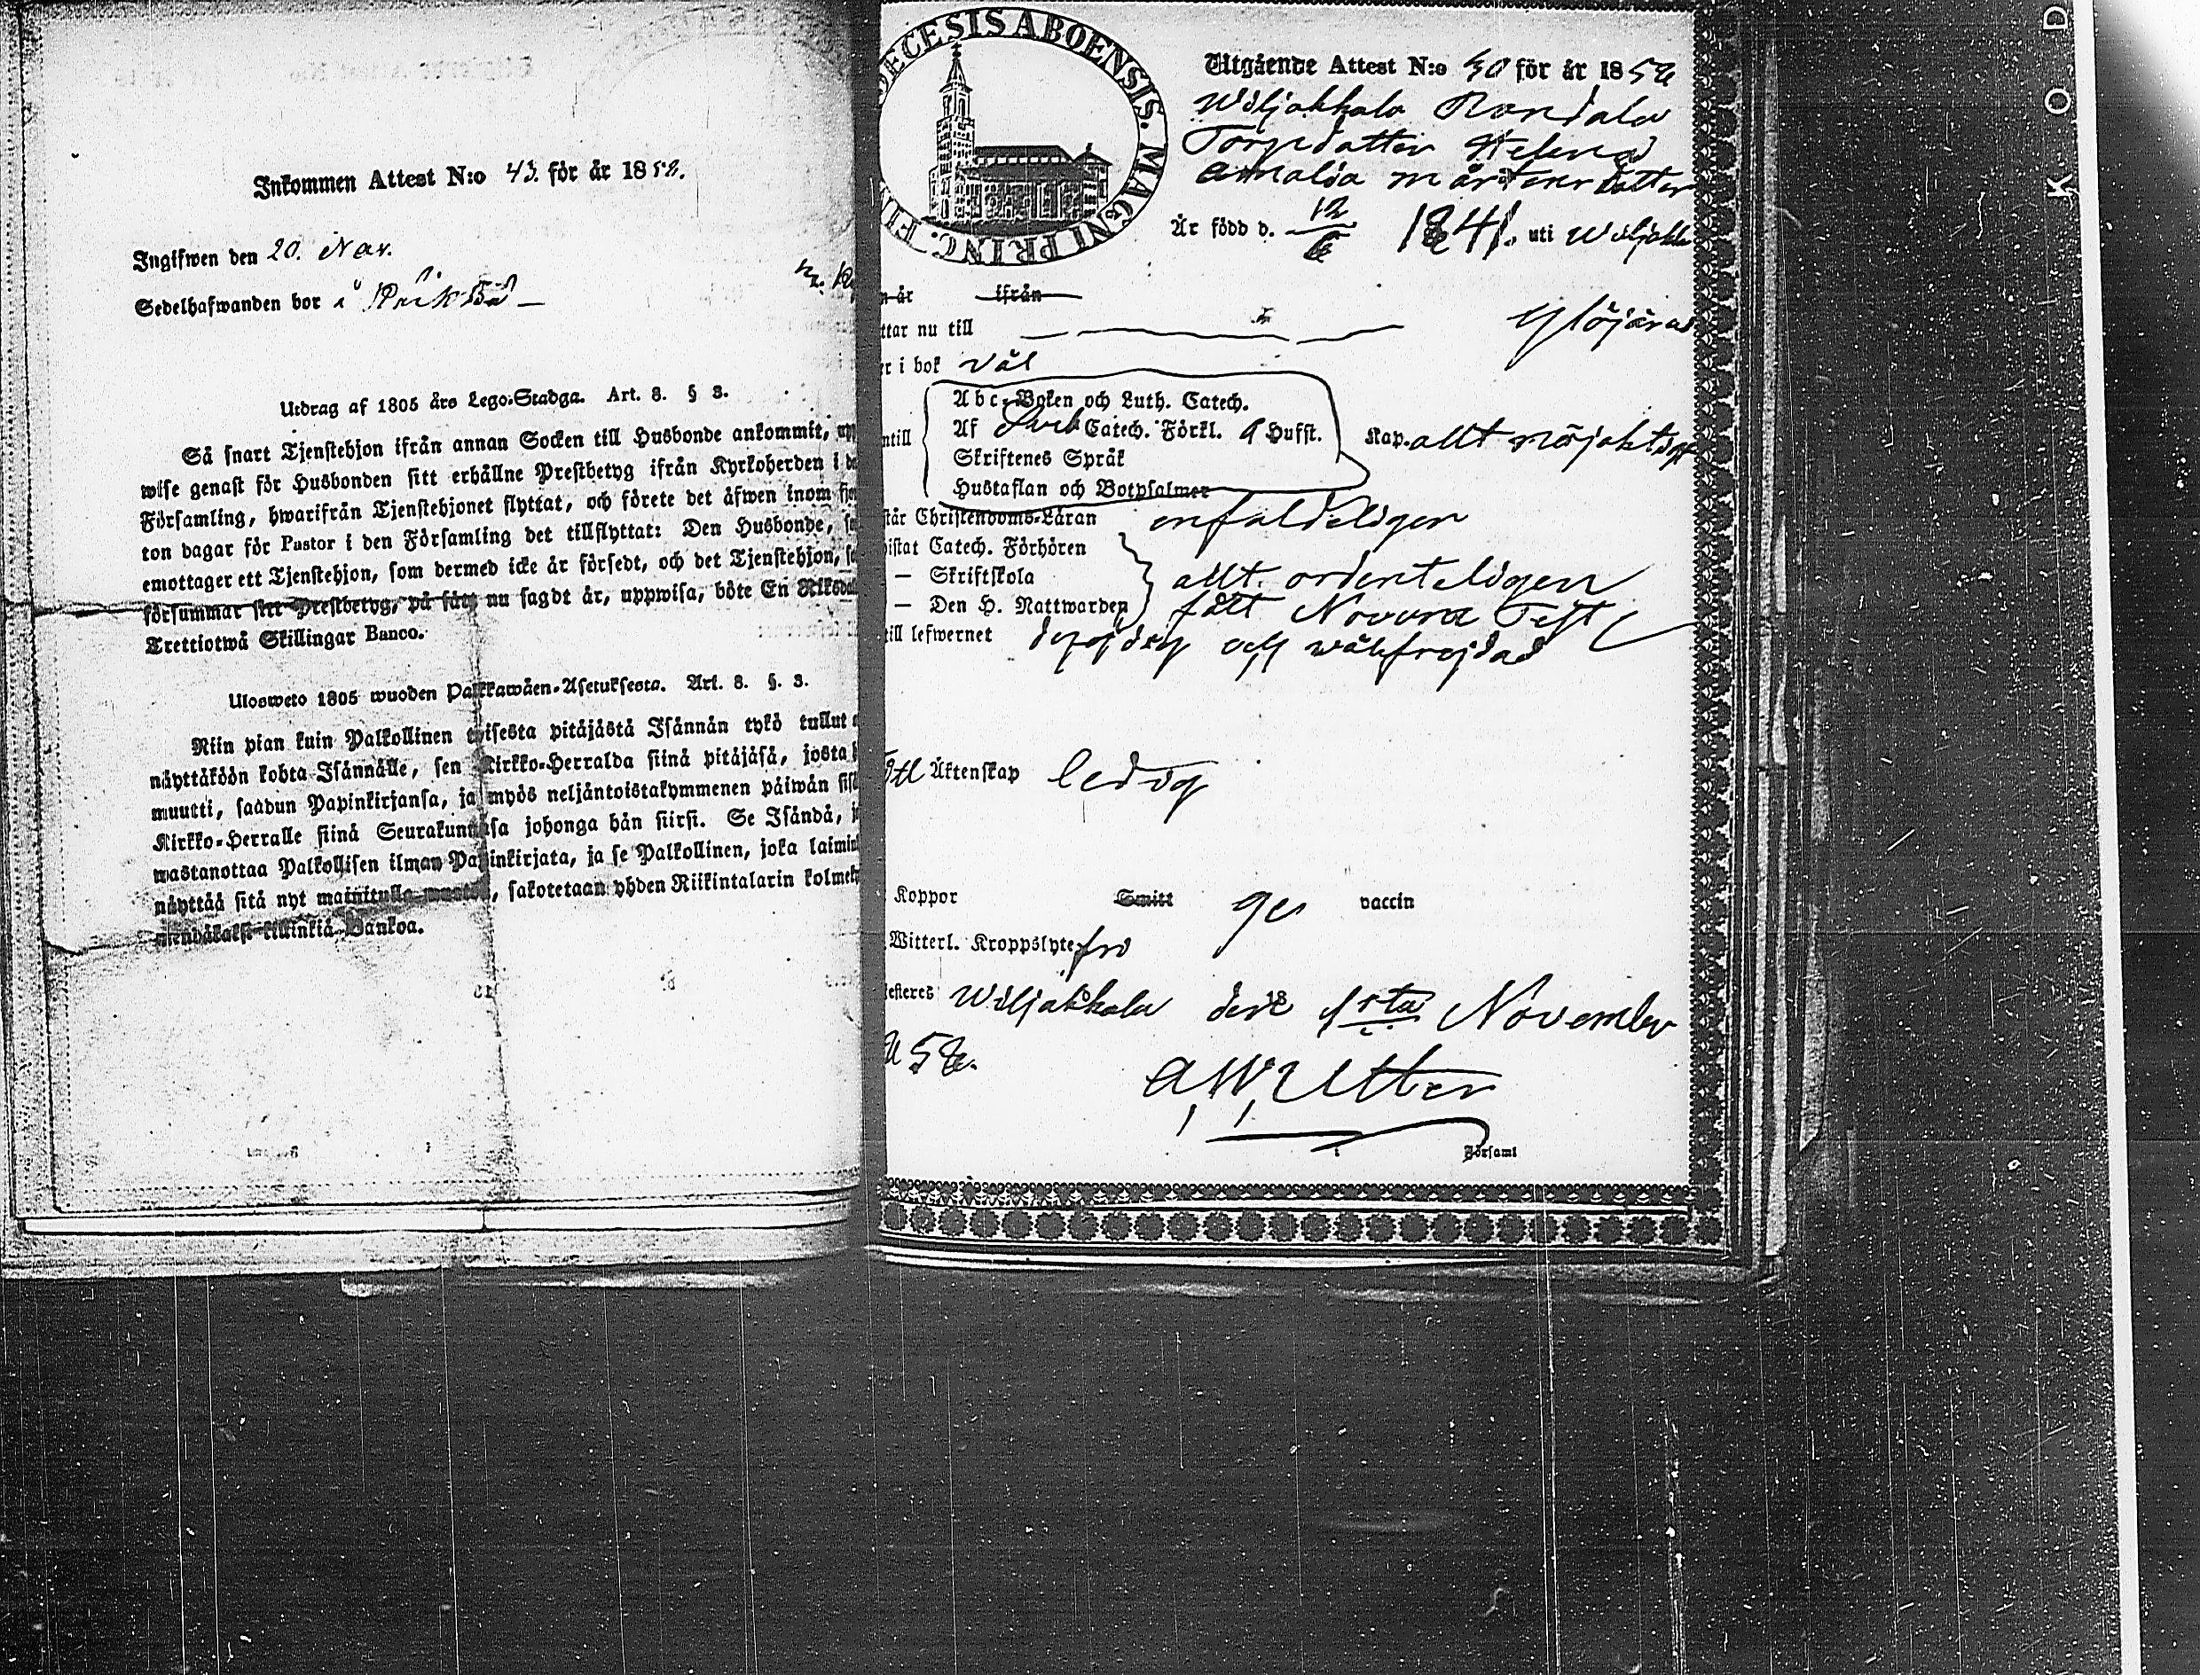 Inkommen Attest N:o 43. för år 1858.
Ingifwen den 20. Nov.
Sedelhafwanden bor i
Utdrag af 1805 års Lego-Stadga. Art. 8. § 3.
Så snart Tjenstehjon ifrån annan Socken till Husbonde ankommit,
wise genast för Husbonden sitt erhållne Prestbetyg ifrån Kyrkoherden i
Församling, hwarifrån Tjenstehjonet flyttat, och förete det åfwen inom
ton dagar för Pastor i den Församling det tillflyttat: Den Husbonde,
emottager ett Tjenstehjon, som dermed icke är försedt, och det Tjenstehjon,
försummar sitt Prestbetyg, på sätt nu sagdt är, uppwisa, böte En
Trettiotwå Skillingar Banco.
Ulosweto 1805 wuoden Palkkawäen-Asetuksesta. Art. 8. §. 3.
Niin pian kuin Palkollinen toisesta pitäjästä Isännän tykö tullut
näyttäköön kohta Isännälle, sen Kirkko-Herralda siinä pitäjäsä, josta
muutti, saadun Papinkirjansa, ja myös neljäntoistakymmenen päiwän
Kirkko-Herralle siinä Seurakunnasa johonga hän siirsi. Se Isändä,
wastanottaa Palkollisen ilman Papinkirjata, ja se Palkollinen, joka
näyttää sitä nyt mainitulla, sakotetaan yhden Riikintalarin
mendäkaksi killinkiä Bankoa.
DIECESIS ABOENSIS. MAGNI PRINC.
Utgående Attest N:o 40 för år 1858
Wiljakkala
Torpdotter Helena
Amalia Mårtensdotter
Är född d. 12/6 1841. uti Wiljakkala
ifrån
ttar nu till Ylöjärvi
i bok väl
Abc-Boken och Luth. Catech.
Af Catech. Förkl. Hufst. Kap. allt nöjaktigt
Skriftenes Språk
Hustaflan och Botpsalmer
Christendoms-Läran enfaldeligen
Catech. Förhören
— Skriftskola allt ordenteligen
— Den H. Nattwarden fått Novum Test
till lefwernet och wälfrejdad
till Äktenskap ledig
Koppor Smitt vaccin
Witterl. Kroppslyte fri
Wiljakkala den 1sta November
58.
A. W. Utter
Församl
KOD